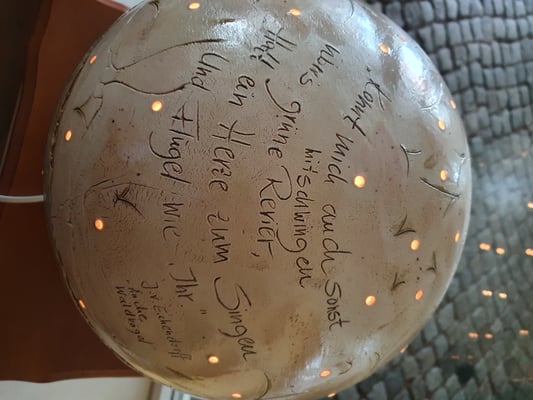 „Konnt mich auch sonst
mitschwingen
übers grüne Revier,
Hatt' ein Herze zum Singen
Und Flügel wie Ihr."
J.v Eichendorff
"An die
Waldvögel